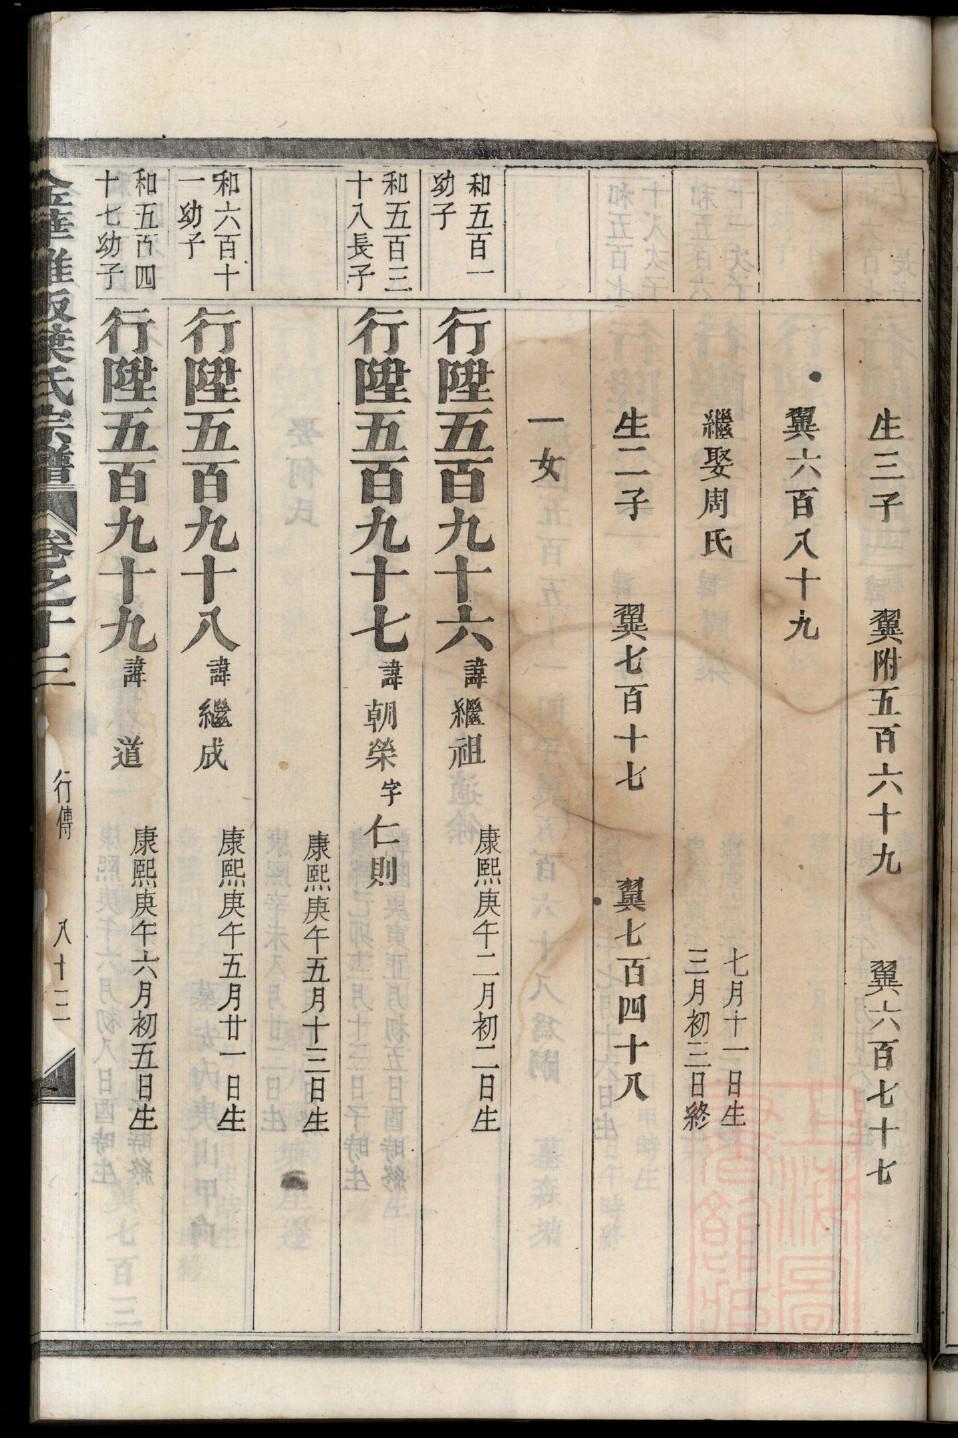 生三子 翼附五百六十九 翼六百七十七
翼六百八十九
繼娶周氏 七月十一日生
三月初三日終
生二子 翼七百十七 翼七百四十八
一女
和五百一
幼子
行陞五百九十六 諱繼祖 康熙庚午二月初二日生
和五百三
十八長子
行陞五百九十七 諱朝榮 字仁則
康熙庚午五月十三日生
和六百十
一幼子
行陞五百九十八 諱繼成 康熙庚午五月廿一日生
和五百四
十七幼子
行陞五百九十九 諱道 康熙庚午六月初五日生
金華雅畈葉氏宗譜 卷之十三 行傳